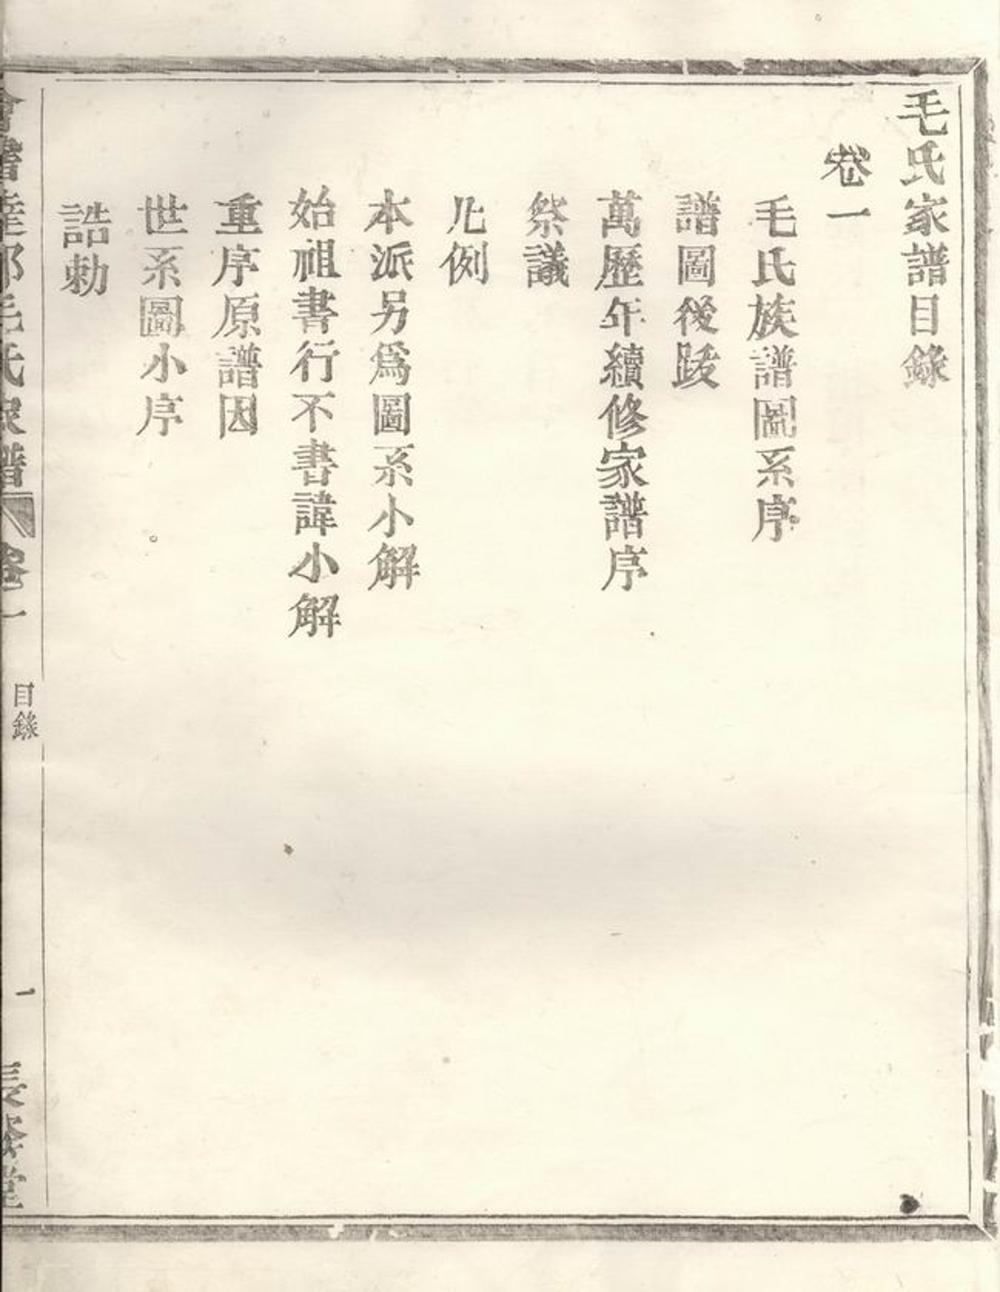 毛氏家譜目錄
卷一
毛氏族譜圖系序
譜圖後跋
萬歷年續修家譜序
祭議
凡例
本派另為圖系小解
始祖書行不書諱小解
重序原譜因
世系圖小序
誥勅
毛氏家譜
卷一
目錄
一
長發堂